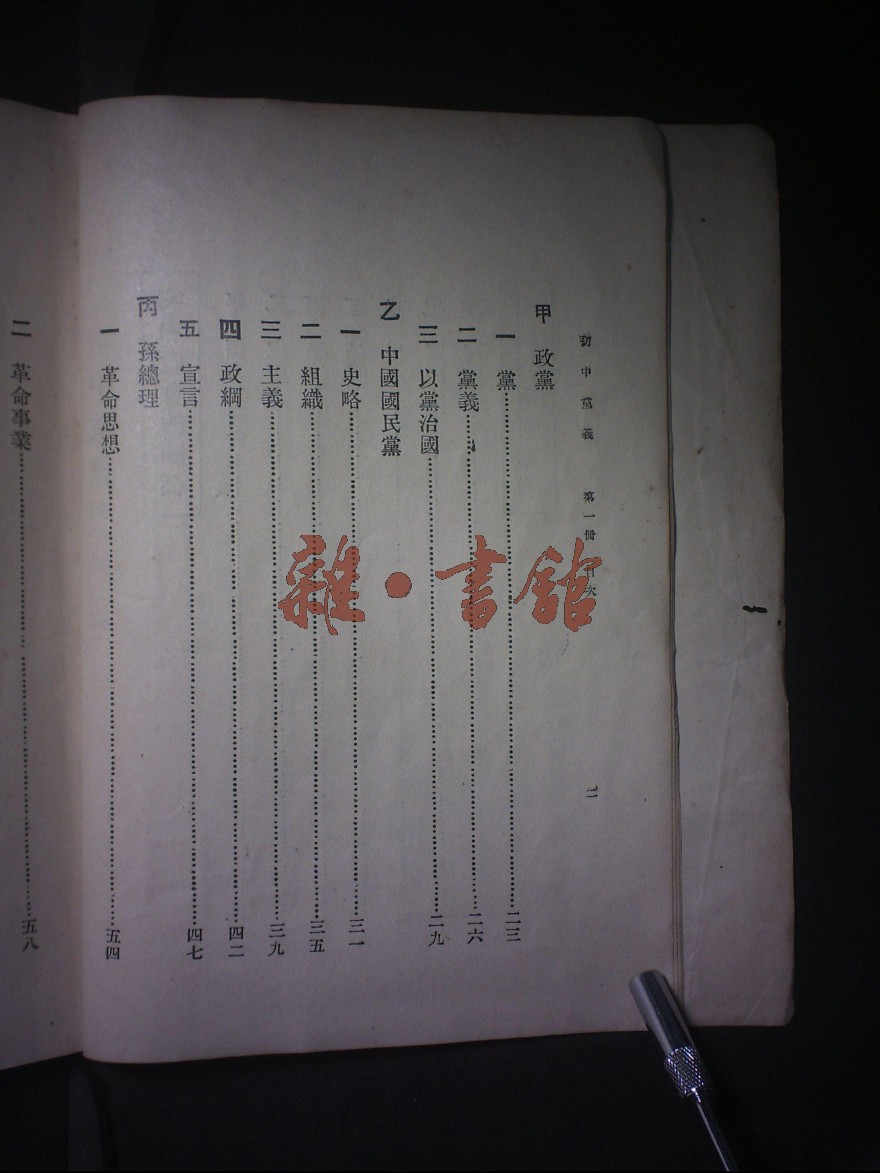 初中黨義 第一冊 目次 二
甲 政黨
一 黨……二三
二 黨義……二六
三 以黨治國……二九
乙 中國國民黨
一 史略……三一
二 組織……三五
三 主義……三九
四 政綱……四二
五 宣言……四七
丙 孫總理
一 革命思想……五四
二 革命事業……五八
雜·書館